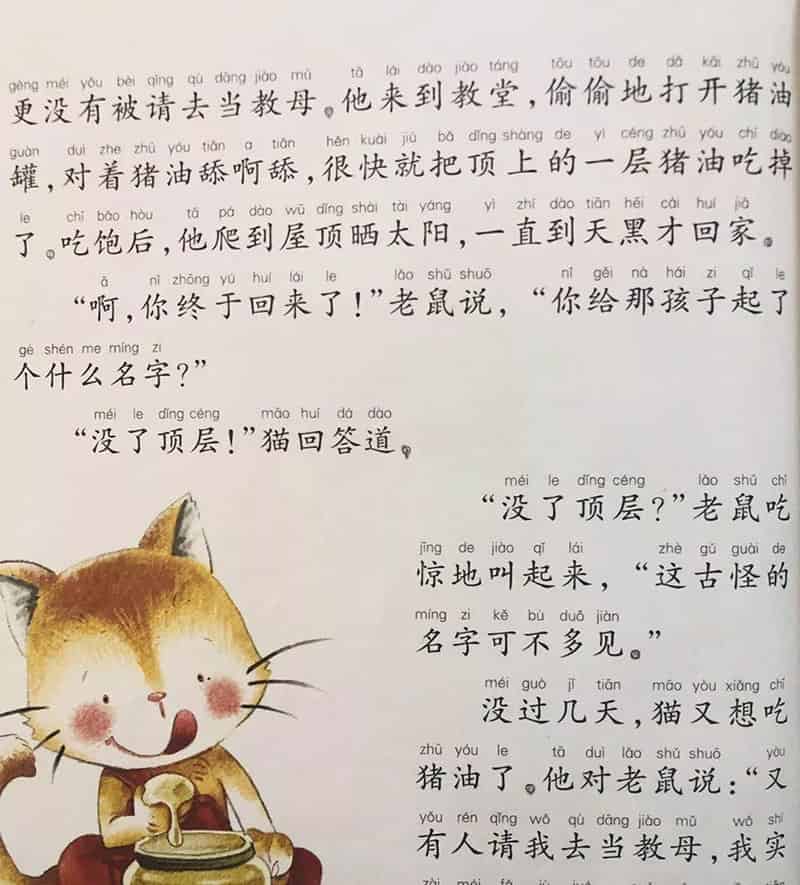 gèng méi yǒu bèi qǐng qù dāng jiào mǔ tā lái dào jiào táng tōu tōu de dǎ kāi zhū yóu
更没有被请去当教母。他来到教堂，偷偷地打开猪油
guàn duì zhe zhū yóu tiǎn a tiǎn hěn kuài jiù bǎ dǐng shàng de yì céng zhū yóu chī diào
罐，对着猪油舔啊舔，很快就把顶上的一层猪油吃掉
le chī bǎo hòu tā pá dào wū dǐng shài tài yáng yì zhí dào tiān hēi cái huí jiā
了。吃饱后，他爬到屋顶晒太阳，一直到天黑才回家。
ā nǐ zhōng yú huí lái le lǎo shǔ shuō nǐ gěi nà hái zi qǐ le
“啊，你终于回来了！”老鼠说，“你给那孩子起了
gè shén me míng zi
个什么名字？”
méi le dǐng céng māo huí dá dào
“没了顶层！”猫回答道。
méi le dǐng céng lǎo shǔ chī
“没了顶层？”老鼠吃
jīng de jiào qǐ lái zhè gǔ guài de
惊地叫起来，“这古怪的
míng zi kě bù duō jiàn
名字可不多见。”
méi guò jǐ tiān māo yòu xiǎng chī
没过几天，猫又想吃
zhū yóu le tā duì lǎo shǔ shuō yòu
猪油了。他对老鼠说：“又
yǒu rén qǐng wǒ qù dāng jiào mǔ wǒ shí
有人请我去当教母，我实